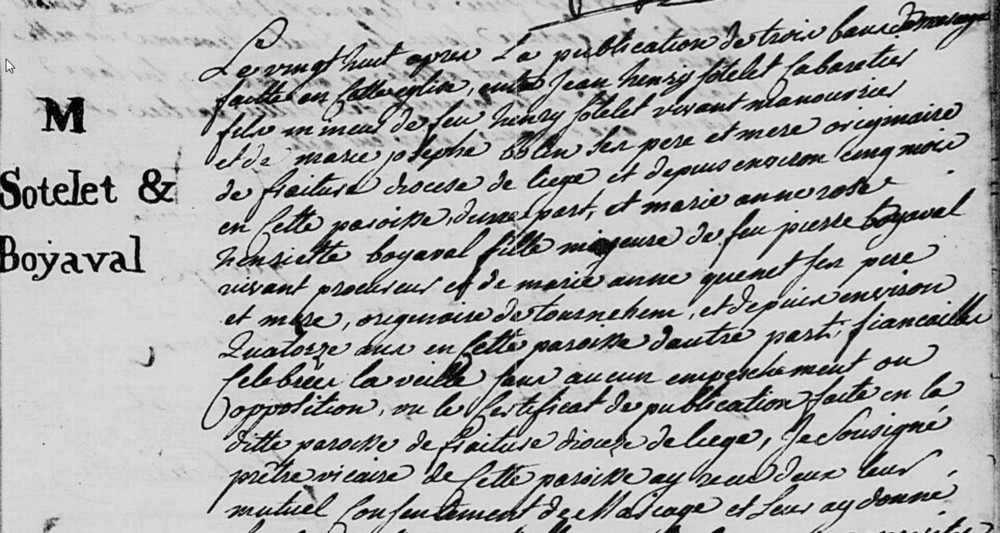 M
Sotelet &
Boyaval
Le vingt huit apres La publication de trois bans de mariage
faitte en Cette eglise, entre Jean henry Sotelet Cabaretier
fils mineur de feu henry Sotelet vivant manouvrier
et de marie josephe bolin ses pere et mere originaire
de fraiture diocese de liege et depuis environ cinq mois
en Cette paroisse, d'une part, et marie anne rose
henriette boyaval fille majeure de feu pierre boyaval
vivant procureur et de marie anne quenet ses pere
et mere, originaire de tournehem, et depuis environ
Quatorze ans en Cette paroisse d'autre part, fiancailles
Celebrées la veille sans aucun empeschement ou
opposition, vu le Certificat de publication faite en la
ditte paroisse de fraiture diocese de liege, Je Sousigné
prêtre vicaire de Cette paroisse ay receu d'eux leur
mutuel Consentement de Mariage et Leur ay donné